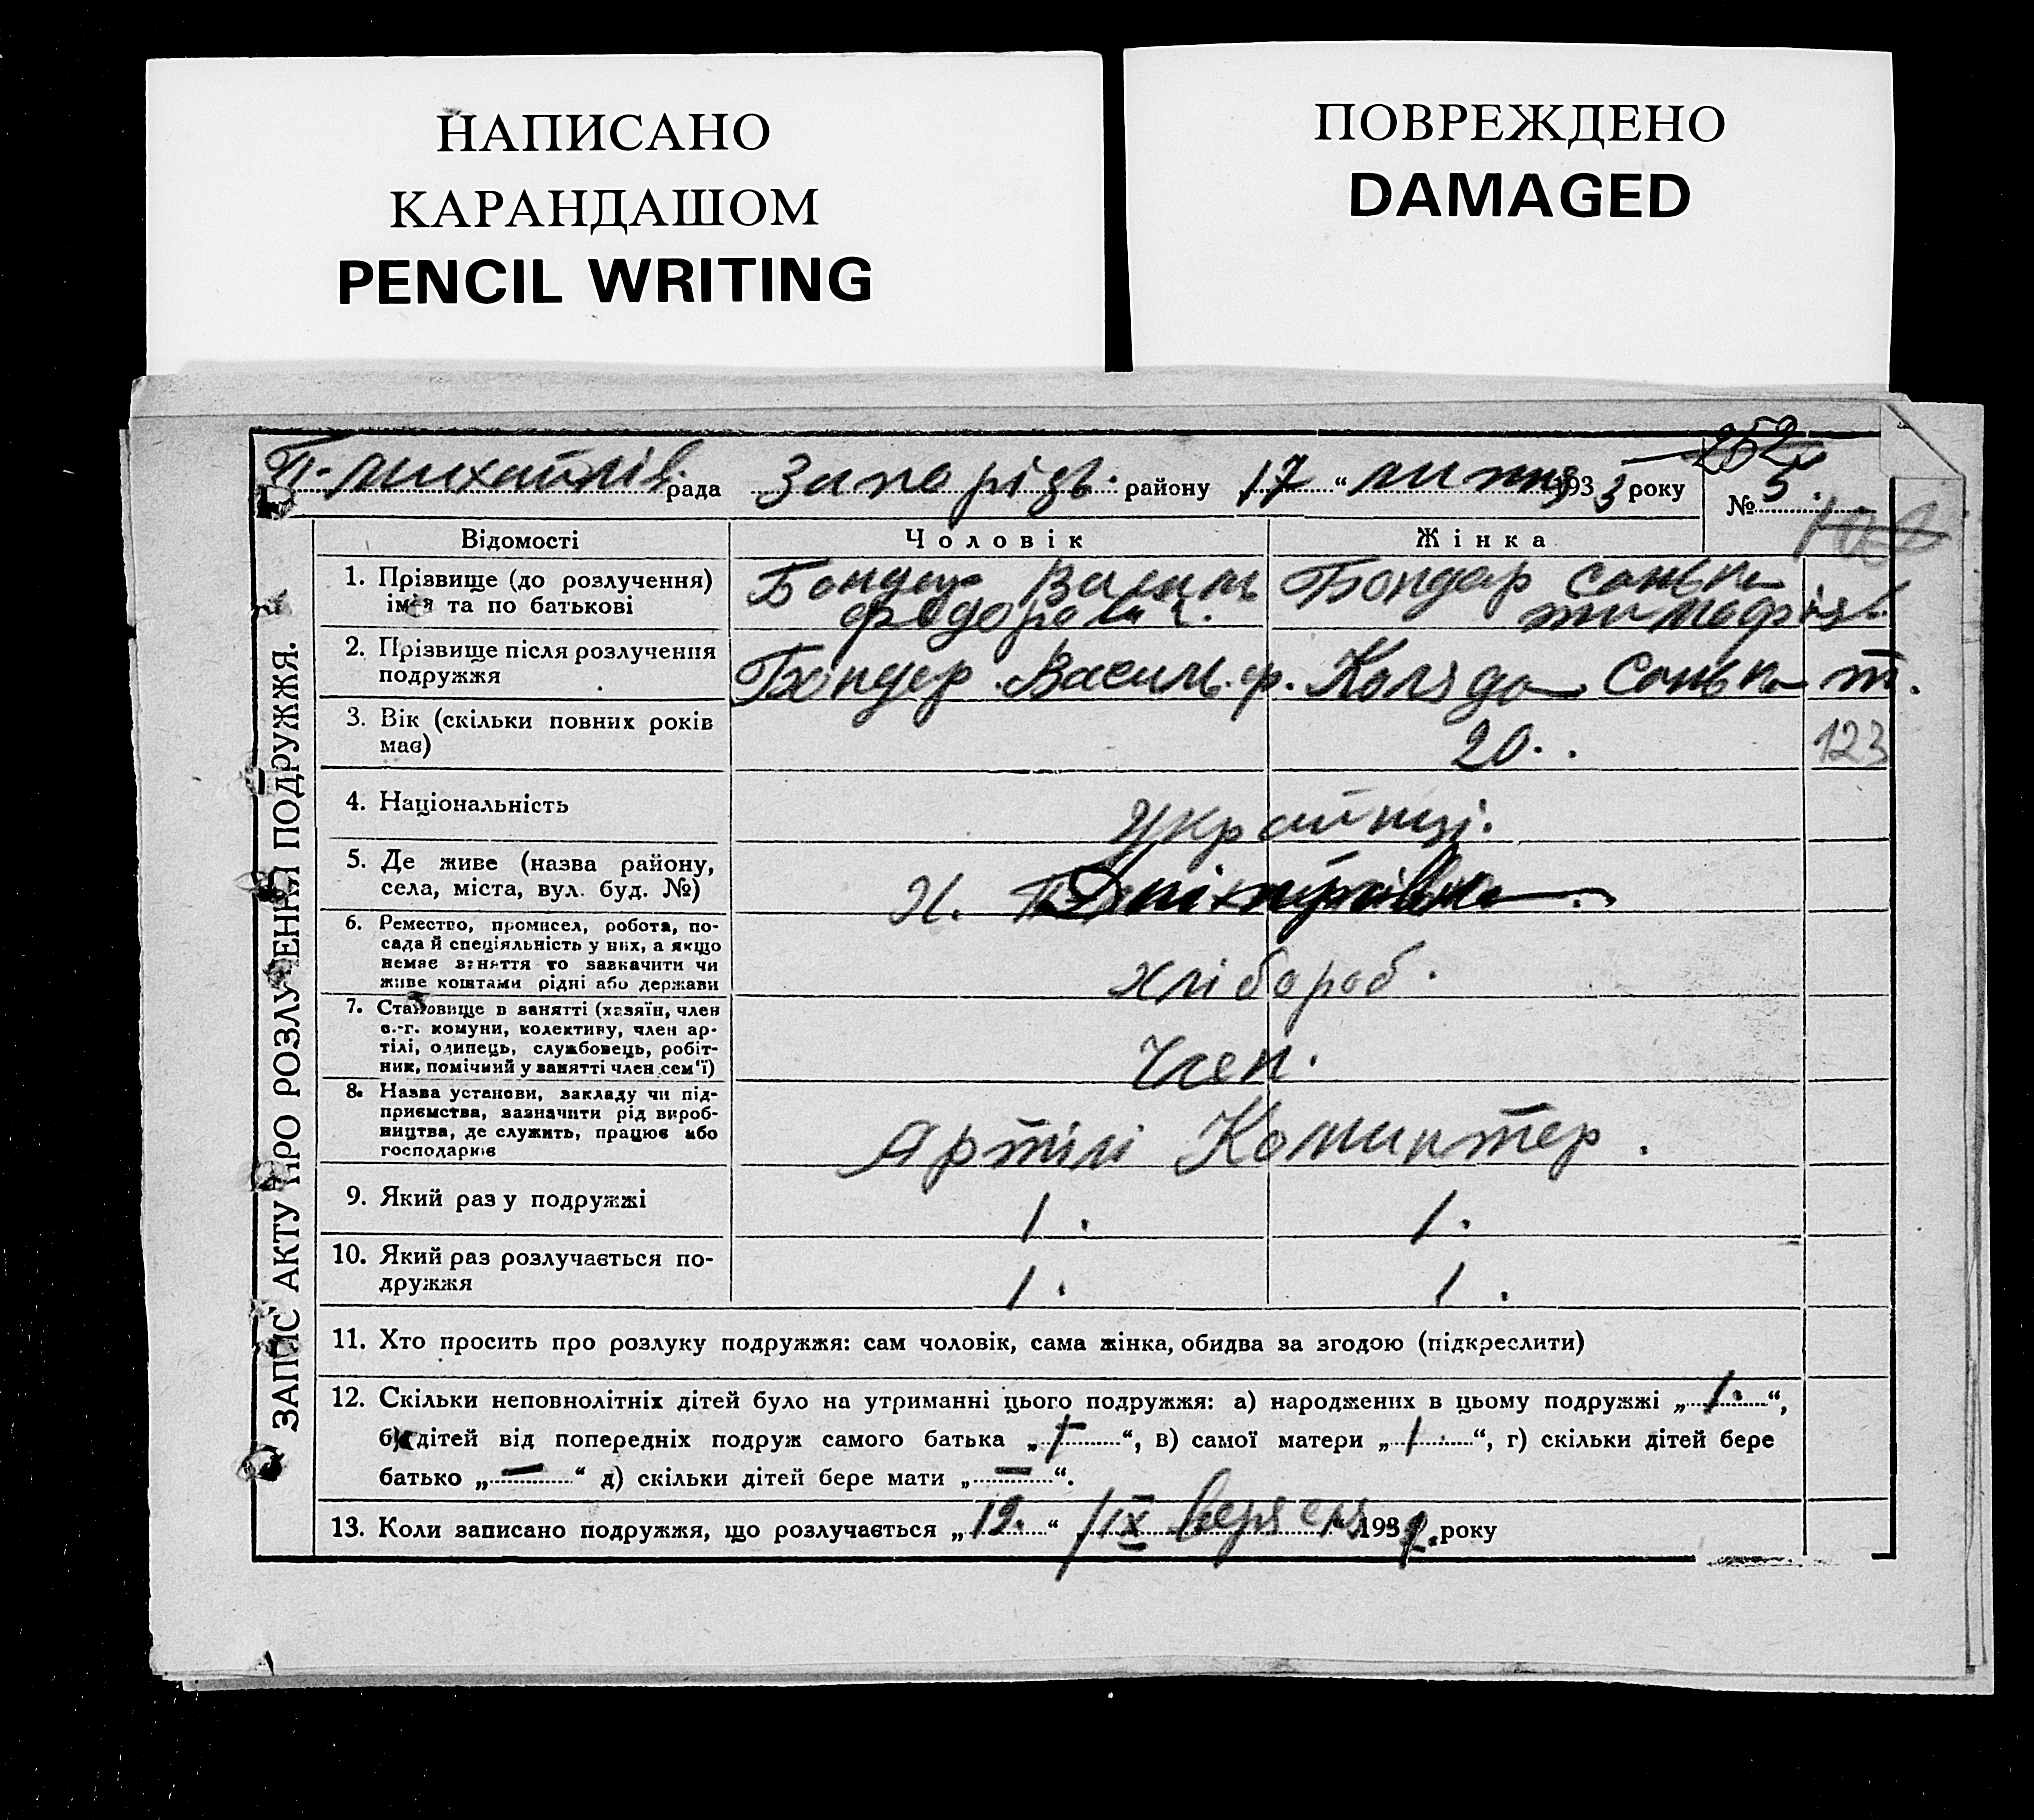 НАПИСАНО
КАРАНДАШОМ
PENCIL WRITING
ПОВРЕЖДЕНО
DAMAGED
252
П. Михайлів. рада Запорізь. району 17 " липня 1933 року № 5.
ЗАПИС АКТУ ПРО РОЗЛУЧЕННЯ ПОДРУЖЖЯ.
Відомості Чоловік Жінка
1. Прізвище (до розлучення) Бондар Василь Бондар Сонька
ім'я та по батькові Федорович. Тимофіїв.
2. Прізвище після розлучення
подружжя Бондар. Василь. Ф. Коляда Сонька Т.
3. Вік (скільки повних років
має) 20. 123
4. Національність Українці.
5. Де живе (назва району,
села, міста, вул. буд. №) Х.
6. Ремество, промисел, робота, по-
сада й спеціяльність у них, а якщо
немає заняття то зазначити чи
живе коштами рідні або держави хлібороб.
7. Становище в занятті (хазяїн, член
с.-г. комуни, колективу, член ар-
тілі, одинець, службовець, робіт-
ник, помічний у занятті член сем'ї) Член.
8. Назва установи, закладу чи під-
приємства, зазначити рід вироб-
ництва, де служить, працює або
господарює Артілі Коминтер.
9. Який раз у подружжі 1. 1.
10. Який раз розлучається по-
дружжя 1. 1.
11. Хто просить про розлуку подружжя: сам чоловік, сама жінка, обидва за згодою (підкреслити)
12. Скільки неповнолітніх дітей було на утриманні цього подружжя: а) народжених в цьому подружжі „ 1. “,
б) дітей від попередніх подруж самого батька „ “, в) самої матери „ “, г) скільки дітей бере
батько „ — “ д) скільки дітей бере мати „ — “.
13. Коли записано подружжя, що розлучається „ 12. “ /IX вересня 1932. року